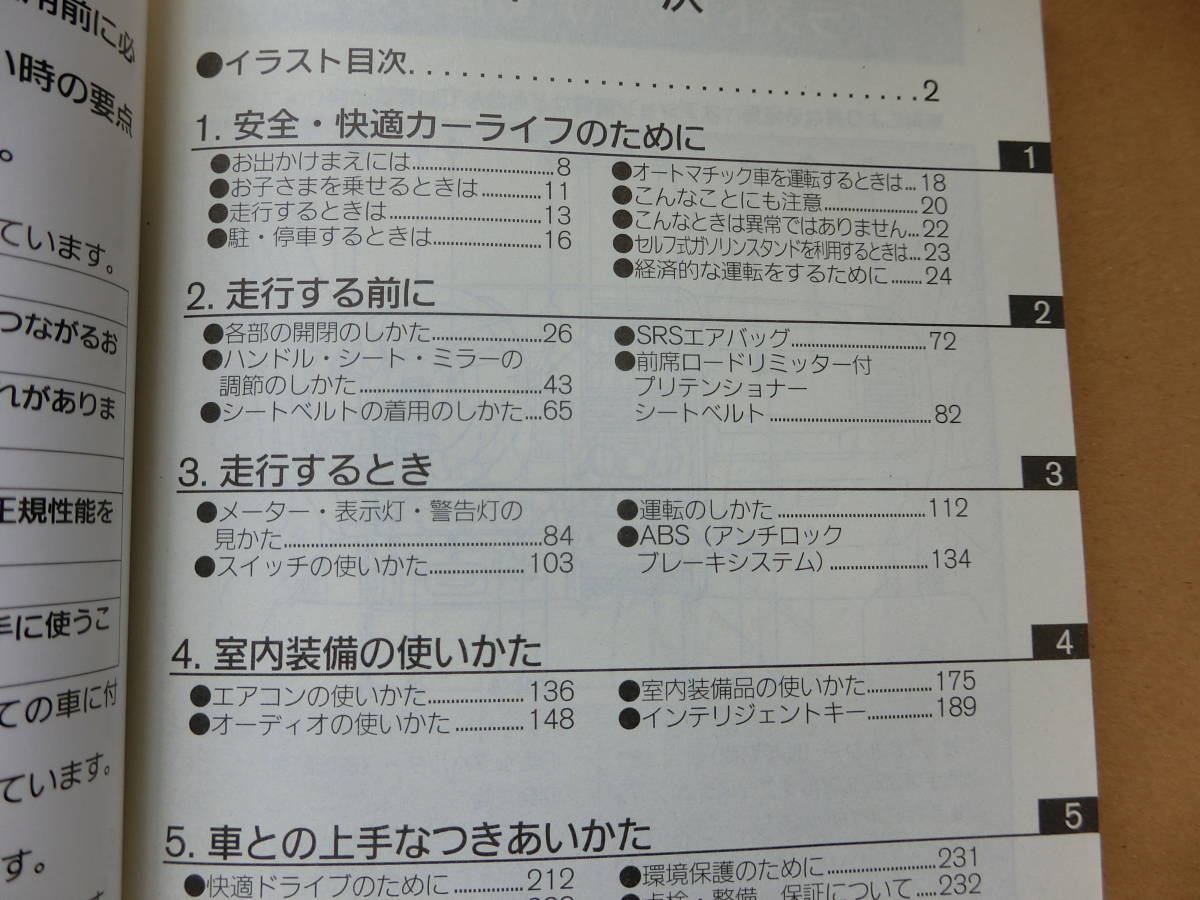 用前に必
い時の要点
。
ています。
つながるお
れがありま
正規性能を
手に使うこ
ての車に付
ています。
す。
次
●イラスト目次......................................2
1. 安全・快適カーライフのために
1
●お出かけまえには..................8
●お子さまを乗せるときは..........11
●走行するときは....................13
●駐・停車するときは................16
●オートマチック車を運転するときは...18
●こんなことにも注意................20
●こんなときは異常ではありません...22
●セルフ式ガソリンスタンドを利用するときは...23
●経済的な運転をするために........24
2. 走行する前に
2
●各部の開閉のしかた................26
●ハンドル・シート・ミラーの
調節のしかた........................43
●シートベルトの着用のしかた....65
●SRSエアバッグ......................72
●前席ロードリミッター付
プリテンショナー
シートベルト........................82
3. 走行するとき
3
●メーター・表示灯・警告灯の
見かた................................84
●スイッチの使いかた..............103
●運転のしかた......................112
●ABS（アンチロック
ブレーキシステム）................134
4. 室内装備の使いかた
4
●エアコンの使いかた..............136
●オーディオの使いかた............148
●室内装備品の使いかた............175
●インテリジェントキー............189
5. 車との上手なつきあいかた
5
●快適ドライブのために............212
●環境保護のために................231
●点検・整備、保証について.....232